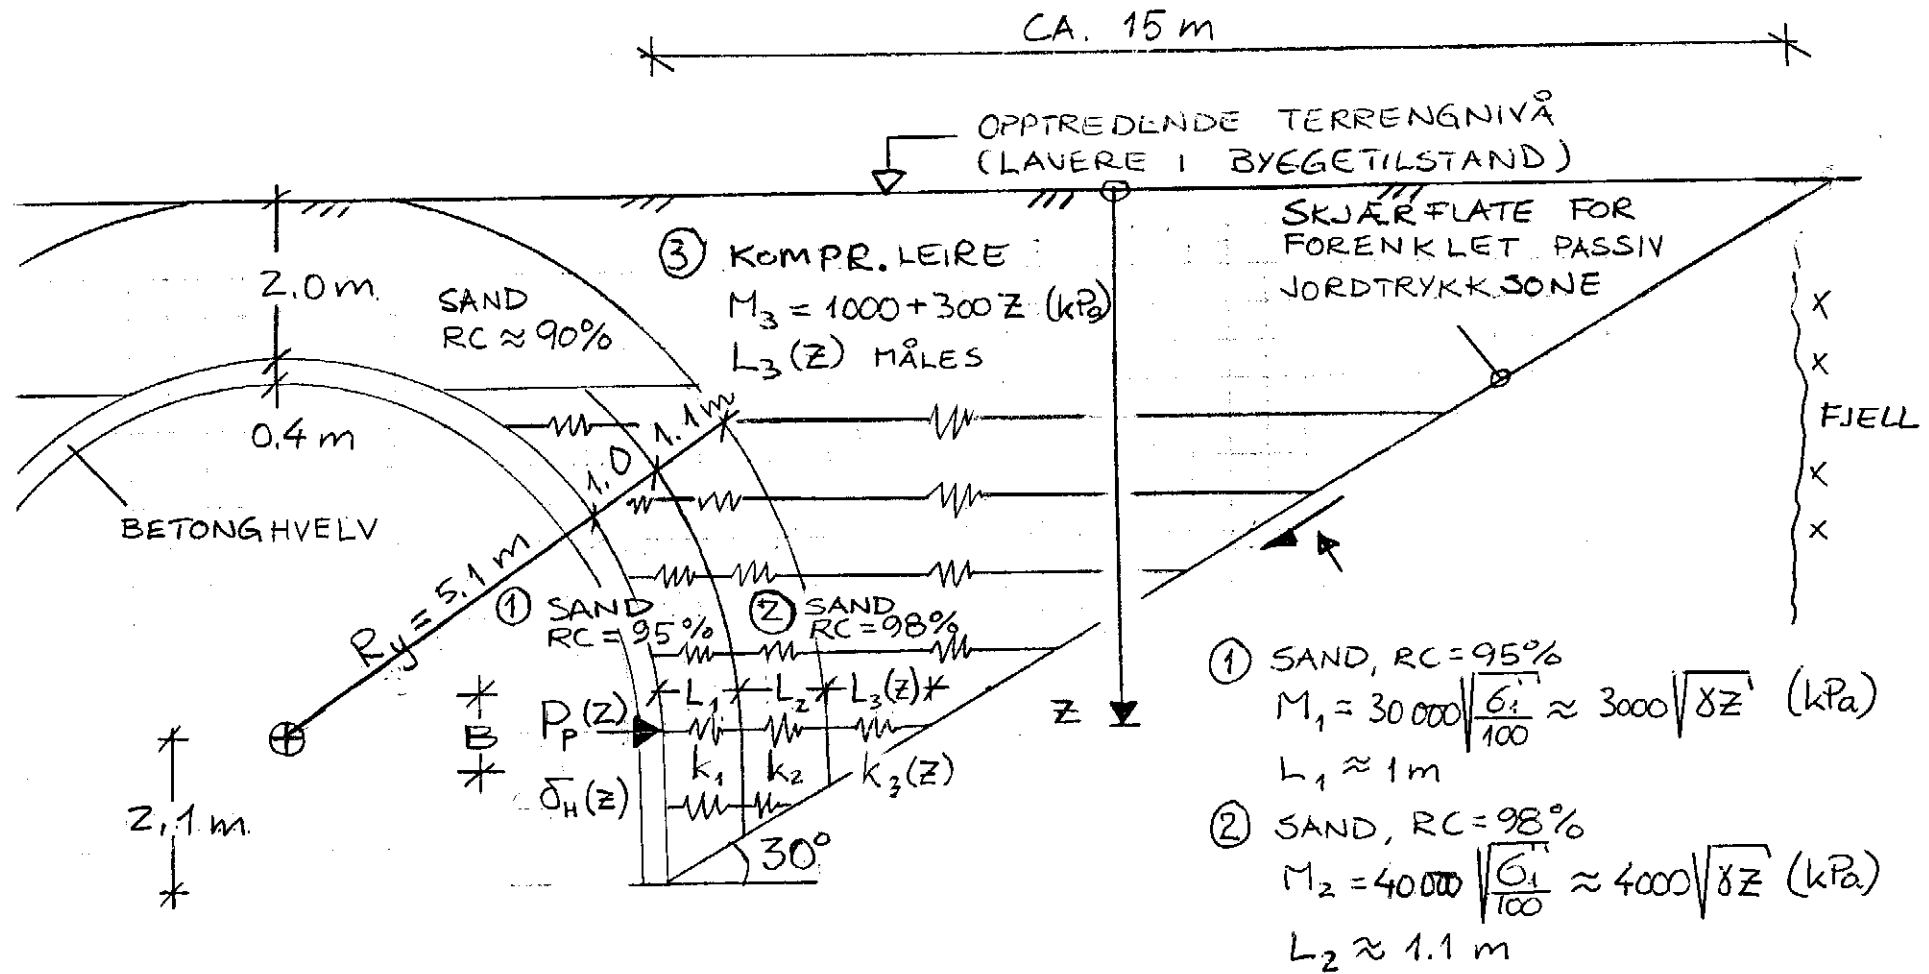 CA. 15 m
OPPTREDENDE TERRENGNIVÅ
(LAVERE I BYGGETILSTAND)
SKJÆRFLATE FOR
FORENKLET PASSIV
JORDTRYKKSONE
③ KOMPR. LEIRE
M₃ = 1000 + 300 Z (kPa)
L₃(Z) MÅLES
2.0 m
SAND
RC ≈ 90%
0.4 m
1.1 m
1.0
FJELL
BETONGHVELV
Ry = 5.1 m
① SAND
RC = 95%
② SAND
RC = 98%
L₁ L₂ L₃(Z)
B
Pp(Z)
k₁ k₂ k₃(Z)
δH(Z)
Z
2.1 m
30°
① SAND, RC = 95%
M₁ = 30 000 √(σ₁'/100) ≈ 3000 √(γZ) (kPa)
L₁ ≈ 1 m
② SAND, RC = 98%
M₂ = 40 000 √(σ₁'/100) ≈ 4000 √(γZ) (kPa)
L₂ ≈ 1.1 m